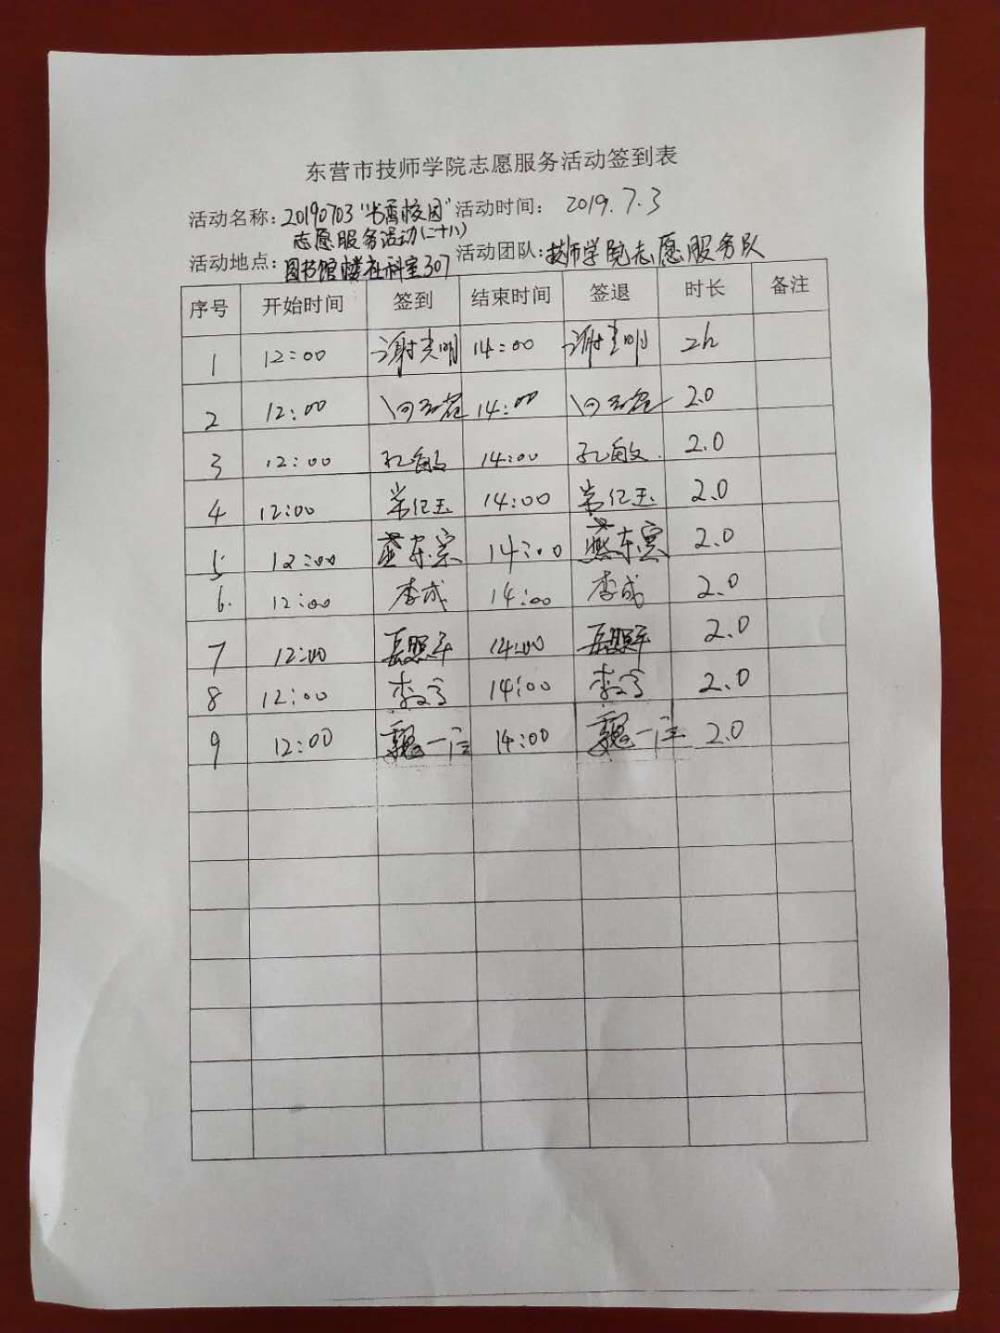 东营市技师学院志愿服务活动签到表
活动名称：20190703"书香校园" 活动时间： 2019.7.3
志愿服务活动(二十八)
活动地点：图书馆楼社科室307 活动团队：技师学院志愿服务队
序号 开始时间 签到 结束时间 签退 时长 备注
1 12:00 谢光明 14:00 谢光明 2h
2 12:00 14:00 2.0
3 12:00 孔敏 14:00 孔敏 2.0
4 12:00 常红玉 14:00 常红玉 2.0
5 12:00 14:00 燕东 2.0
6. 12:00 李成 14:00 李成 2.0
7 12:00 岳照军 14:00 岳照军 2.0
8 12:00 李 14:00 李 2.0
9 12:00 魏一 14:00 魏一 2.0